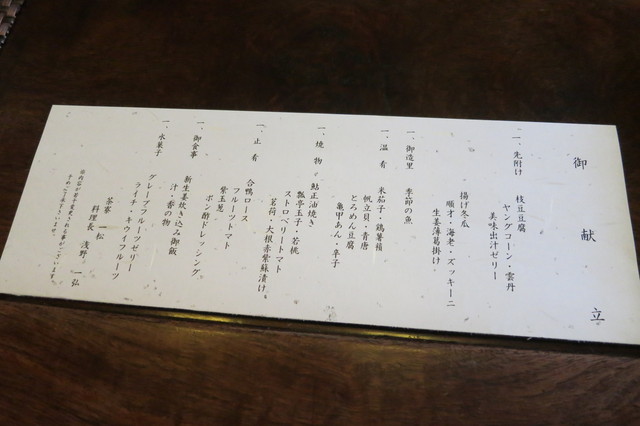 御献立
一、先附け
枝豆豆腐
ヤングコーン・雲丹
美味出汁ゼリー
揚げ冬瓜
順才・海老・ズッキーニ
生姜薄葛掛け
一、御造里
季節の魚
一、温肴
米茄子・鶏薯預
帆立貝・青唐
とろめん豆腐
亀甲あん・辛子
一、焼物
鮎正油焼き
瓢亭玉子・若桃
ストロベリートマト
茗荷・大根赤紫蘇漬け
一、止肴
合鴨ロース
フルーツトマト
紫玉葱
ポン酢ドレッシング
一、御食事
新生姜炊き込み御飯
汁・香の物
一、水菓子
グレープフルーツゼリー
ライチ・キウイフルーツ
茶寮 一松
料理長 浅野 一弘
※内容が若干変更される事がございます。
予めご了承下さいませ。